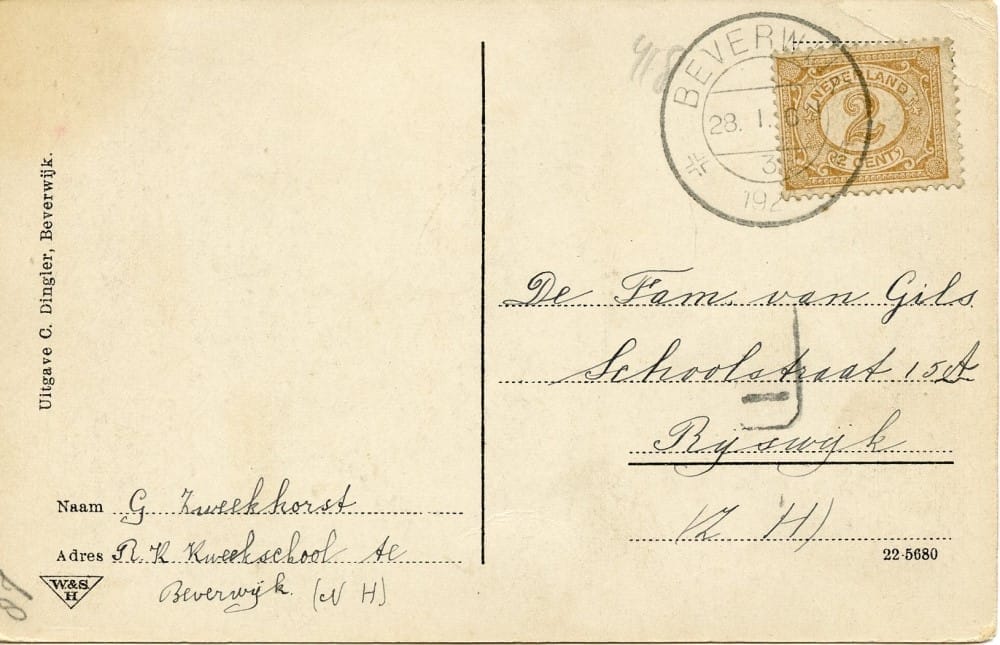 418
BEVERW
28. I. 6
3
192
NEDERLAND
2
2 CENT
Uitgave C. Dingler, Beverwijk.
De Fam. van Gils
Schoolstraat 15A
Ryswyk
(Z H)
22-5680
Naam G Zweekhorst
Adres R. K Kweekschool te
Beverwijk. (N H)
W.&S.
H
87